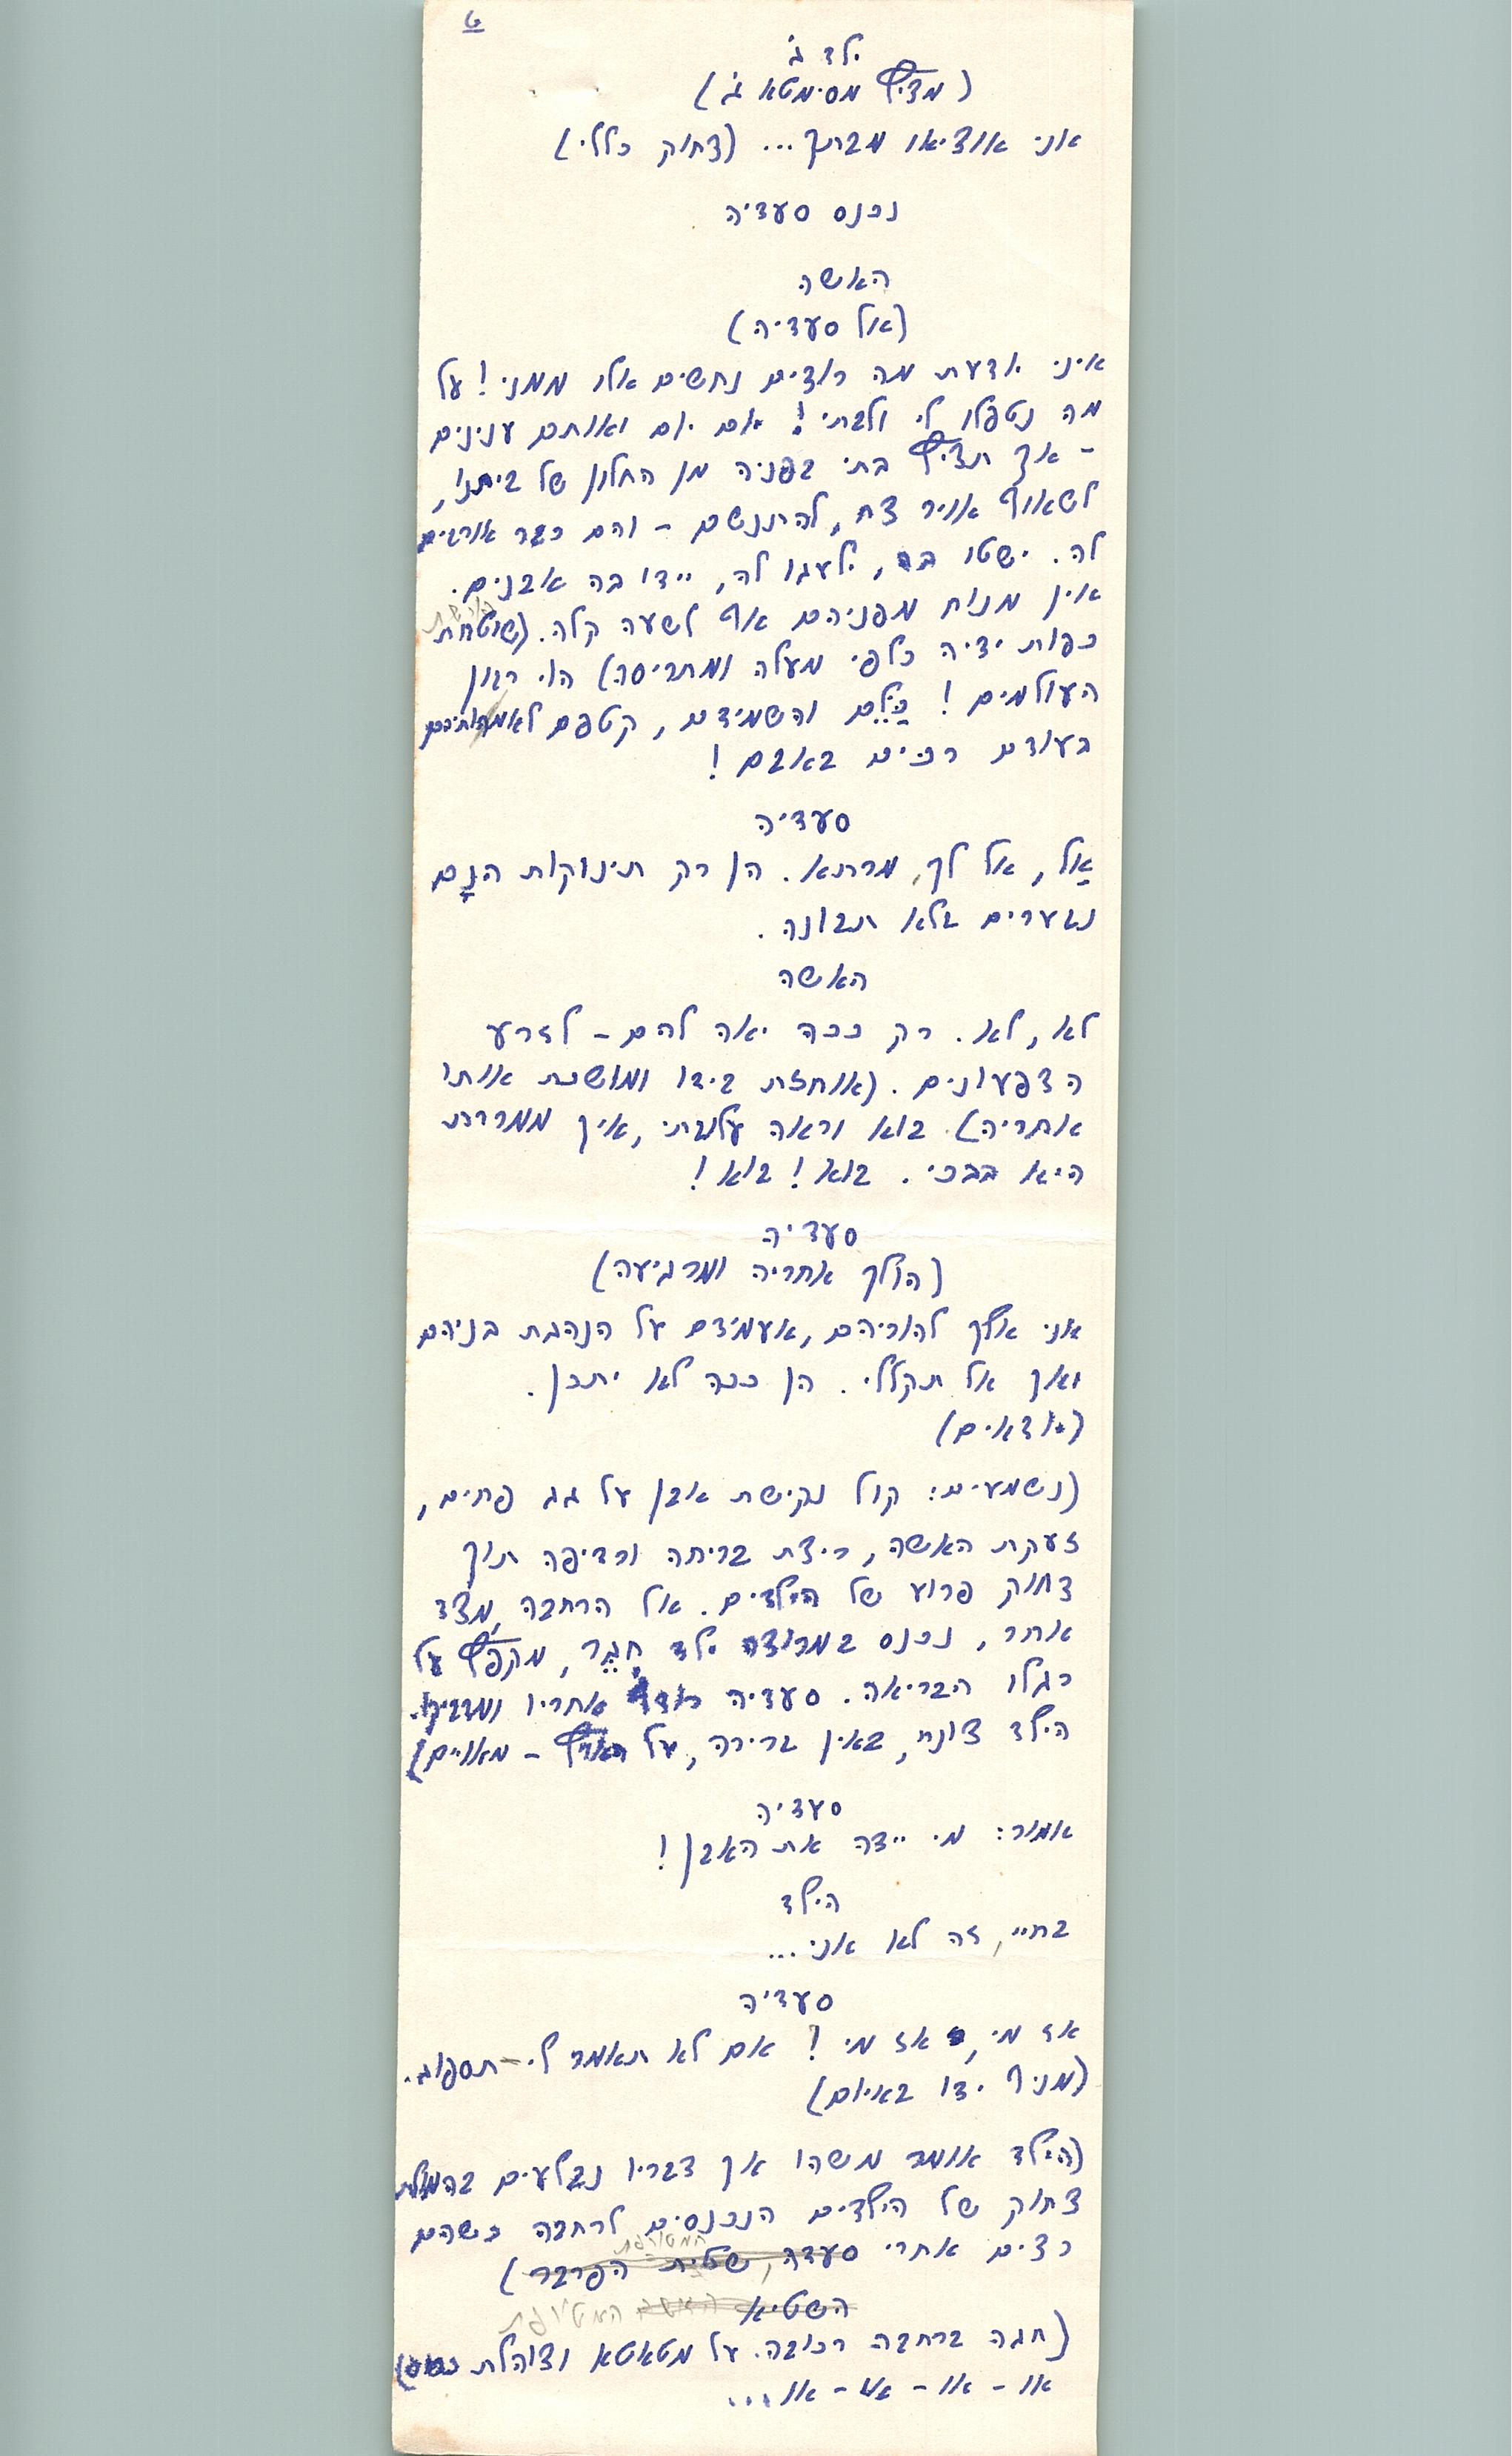 6
ילד ג'
(מציץ מסימטא ג')
אני אוציאו מברתך... (צחוק כללי)
נכנס סעדיה
האשה
(אל סעדיה)
איני יודעת מה רוצים נחשים אלו ממני! על
מה נטפלו לי ולבתי! יום יום ואותם ענינים
- אך תציץ בתי בפניה מן החלון של ביתנו,
לשאוף אויר צח, להתנשם - והם כבר אורבים
לה. ישטו בה, ילעגו לה, יידו בה אבנים.
אין מנוח מפניהם אף לשעה קלה. (שוטחת
פורשת
כפות ידיה כלפי מעלה ומתריסה) הוי רבון
העולמים! כַּלֵּם והשמידם, קטפם לאמותיהם
בעודם רכים באבם!
סעדיה
אַל, אל לך, מרתא. הן רק תינוקות הנָם
נבערים בלא תבונה.
האשה
לא, לא. רק ככה יאה להם - לזרע
הצפעונים. (אוחזת בידו ומושכת אותו
אחריה) בוא וראה עלובתי, איך ממררת
היא בבכי. בוא! בוא!
סעדיה
(הולך אחריה ומרגיעה)
אני אלך להוריהם, אעמידם על הנהגת בניהם
ואך אל תקללי. הן ככה לא יתכן.
(יוצאים)
(נשמעים: קול נקישת אבן על גג פחים,
זעקת האשה, ריצת בריחה ורדיפה תוך
צחוק פרוע של הילדים. אל הרחבה, מצד
אחר, נכנס במרוצה ילד חִגֵּר, מקפץ על
רגלו הבריאה. סעדיה רודף אחריו ומדביקו.
הילד צונח, באין ברירה, על הארץ - מאויים)
סעדיה
אמור: מי יידה את האבן!
הילד
בחיי, זה לא אני...
סעדיה
אז מי, אז מי! אם לא תאמר לי - תספוג.
(מניף ידו באיום)
(הילד אומר משהו אך דבריו נבלעים בהמולת
צחוק של הילדים הנכנסים לרחבה כשהם
רצים אחרי סעדה, שטית הפרבר)
המטורפת
השטיא האשה המטורפת
(חגה ברחבה רכובה על מטאטא וצוהלת כסוס)
או - או - או - או...